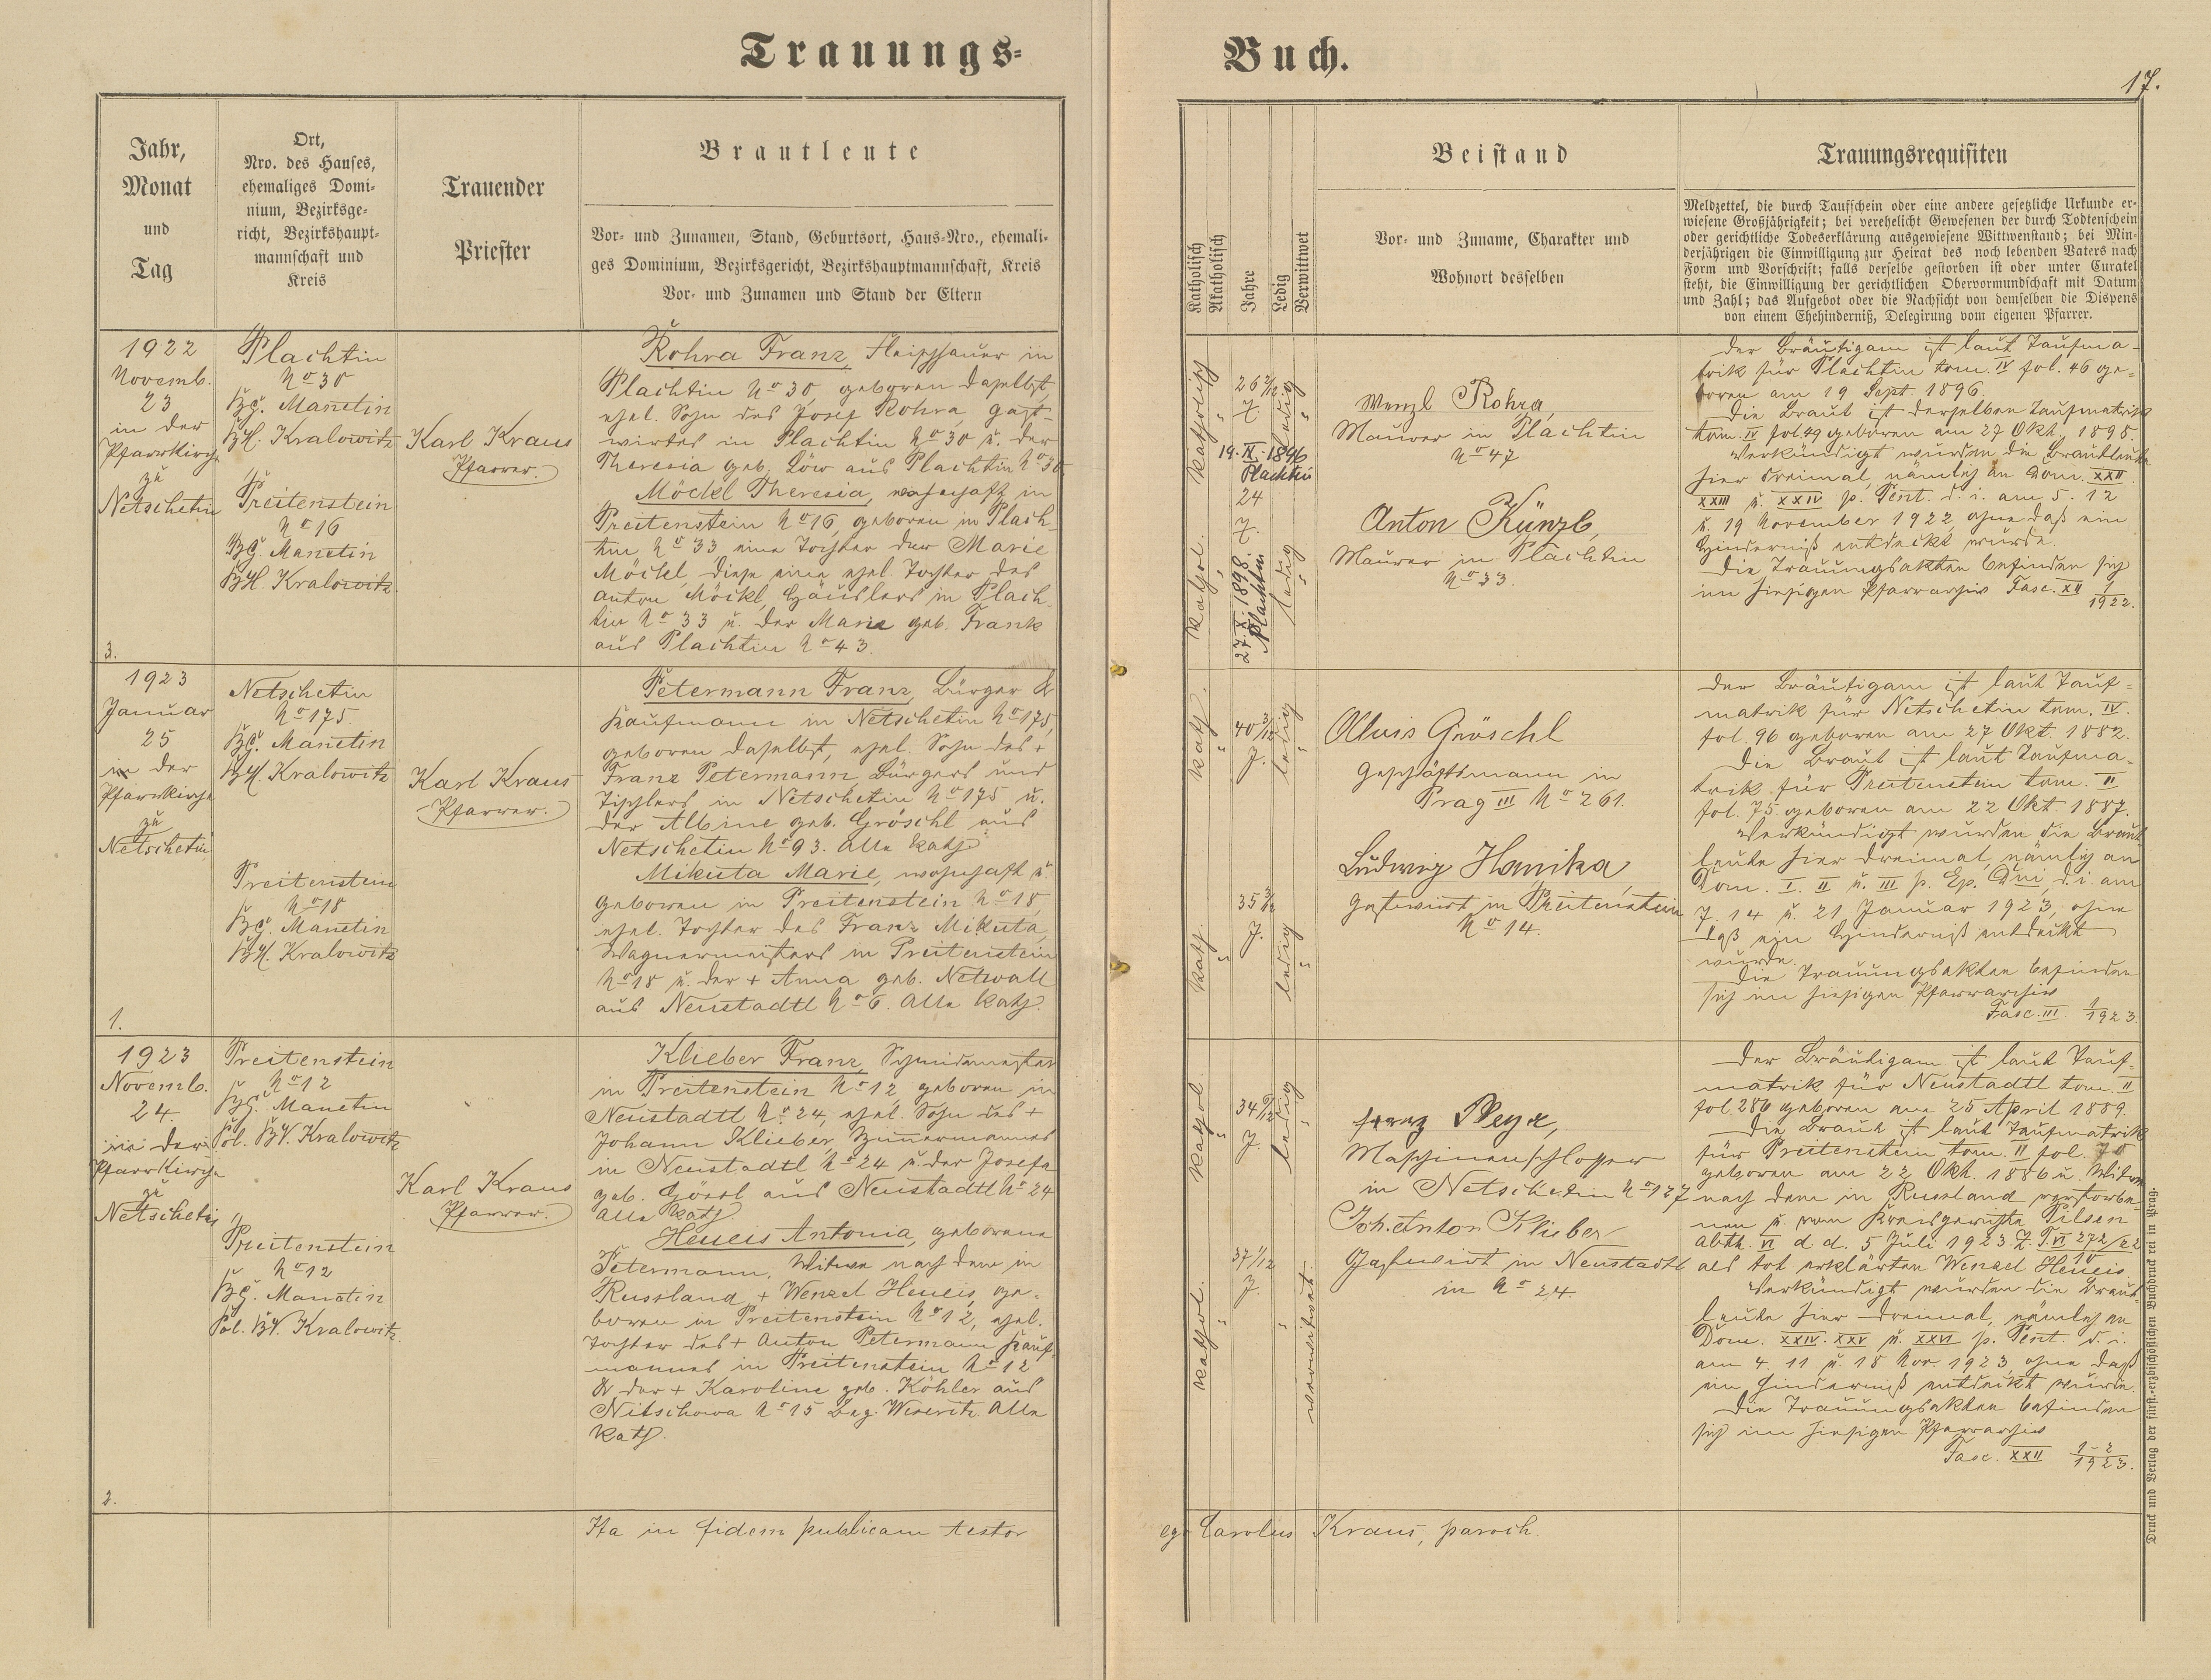 Trauungs-
Buch.
17.
Jahr,
Monat
und
Tag
Ort,
Nro. des Hauses,
ehemaliges Domi-
nium, Bezirksge-
richt, Bezirkshaupt-
mannschaft und
Kreis
Trauender
Priester
Brautleute
Vor- und Zunamen, Stand, Geburtsort, Haus-Nro., ehemali-
ges Dominium, Bezirksgericht, Bezirkshauptmannschaft, Kreis
Vor- und Zunamen und Stand der Eltern
Katholisch
Akatholisch
Jahre
Ledig
Verwittwet
Beistand
Vor- und Zuname, Charakter und
Wohnort desselben
Trauungsrequisiten
Meldzettel, die durch Taufschein oder eine andere gesetzliche Urkunde er-
wiesene Großjährigkeit; bei verehelicht Gewesenen der durch Todtenschein
oder gerichtliche Todeserklärung ausgewiesene Wittwenstand; bei Min-
derjährigen die Einwilligung zur Heirat des noch lebenden Vaters nach
Form und Vorschrift; falls derselbe gestorben ist oder unter Curatel
steht, die Einwilligung der gerichtlichen Obervormundschaft mit Datum
und Zahl; das Aufgebot oder die Nachsicht von demselben die Dispens
von einem Ehehinderniß, Delegirung vom eigenen Pfarrer.
1922
Novemb.
23
in der
Pfarrkirche
zu
Netschetin
3.
Plachtin
No 30
BG. Manetin
BH. Kralowitz
Preitenstein
No 16
BG. Manetin
BH. Kralowitz
Karl Kraus
Pfarrer.
Rohra Franz, Fleischhauer in
Plachtin No 30, geboren daselbst,
ehel. Sohn des Josef Rohra, Gast-
wirtes in Plachtin No 30 u. der
Theresia geb. Löw aus Plachtin No 30
Möckl Theresia, wohnhaft in
Preitenstein No 16, geboren in Plach-
tin No 33, eine Tochter der Marie
Möckl, diese eine ehel. Tochter des
Anton Möckl, Häuslers in Plach-
tin No 33 u. der Marie geb. Frank
aus Plachtin No 43.
katholisch
26 2/12
J.
ledig
19. IX. 1896
Plachtin
kathol.
24
J.
27. X. 1898.
Plachtin
ledig
Wenzl Rohra,
Maurer in Plachtin
No 47
Anton Künzl,
Maurer in Plachtin
No 33.
Der Bräutigam ist laut Taufma-
trik für Plachtin tom. IV fol. 46 ge-
boren am 19 Sept. 1896.
Die Braut ist derselben Taufmatrik
tom. IV fol 49 geboren am 27 Okt. 1898.
Verkündigt wurden die Brautleute
hier dreimal, nämlich an Dom. XXII
XXIII u. XXIV p. Pent. d. i. am 5. 12
u. 19 November 1922, ohne daß ein
Hinderniß entdeckt wurde.
Die Trauungsakten befinden sich
im hiesigen Pfarrarchiv Fasc. XII 1/1922.
1923
Januar
25
in der
Pfarrkirche
zu
Netschetin
1.
Netschetin
No 175.
BG. Manetin
BH. Kralowitz
Preitenstein
No 18
BG. Manetin
BH. Kralowitz
Karl Kraus
Pfarrer.
Petermann Franz, Bürger &
Kaufmann in Netschetin No 175,
geboren daselbst, ehel. Sohn des +
Franz Petermann Bürgers und
Tischlers in Netschetin No 175 u.
der Albine geb. Gröschl aus
Netschetin No 93. Alle kath.
Mikuta Marie, wohnhaft u.
geboren in Preitenstein No 18,
ehel. Tochter des Franz Mikuta,
Wagnermeisters in Preitenstein
No 18 u. der + Anna geb. Netwall
aus Neustadtl No 6. Alle kath.
kath.
40 3/12
J.
ledig
kath.
35 3/12
J.
ledig
Alois Gröschl
Geschäftsmann in
Prag III No 261.
Ludwig Hanika
Gastwirt in Preitenstein
No 14.
Der Bräutigam ist laut Tauf-
matrik für Netschetin tom. IV.
fol. 96 geboren am 27 Okt. 1882.
Die Braut ist laut Taufma-
trik für Preitenstein tom. II
fol. 75 geboren am 22 Okt. 1887.
Verkündigt wurden die Braut
leute hier dreimal, nämlich an
Dom. I. II u. III p. Ep. Dni, d. i. am
7. 14 u. 21 Januar 1923, ohne
daß ein Hinderniß entdeckt
wurde.
Die Trauungsakten befinden
sich im hiesigen Pfarrarchiv
Fasc. III. 1/1923.
1923
Novemb.
24.
in der
Pfarrkirche
zu
Netschetin
2.
Preitenstein
No 12
BG. Manetin
Pol. BV. Kralowitz
Preitenstein
No 12
BG. Manetin
Pol. BV. Kralowitz
Karl Kraus
Pfarrer.
Klieber Franz, Schmidemeister
in Preitenstein No 12, geboren in
Neustadtl No 24, ehel. Sohn des +
Johann Klieber, Zimmermannes
in Neustadtl No 24 u. der Josefa
geb. aus Neustadtl No 24
Alle kath.
Heueis Antonia, geborene
Petermann, Witwe nach dem in
Russland + Wenzel Heueis, ge-
boren in Preitenstein No 12, ehel.
Tochter des + Anton Petermann Kauf-
mannes in Preitenstein No 12
& der + Karoline geb. Köhler aus
Nitschowa No 15 Bzg. Weseritz. Alle
kath.
kathol.
34
J.
ledig
kathol.
37 1/12
J.
verwitwet
Franz
Maschinenschlosser
in Netschetin No 127
Joh. Anton Klieber
Gastwirt in Neustadtl
in No 24.
Der Bräutigam ist laut Tauf-
matrik für Neustadtl tom. II
fol. 286 geboren am 25 April 1889.
Die Braut ist laut Taufmatrik
für Preitenstein tom. II fol. 70
geboren am 22 Okt. 1886 u. Witwe
nach dem in Russland verstorbe-
nen u. vom Kreisgerichte Pilsen
Abth. VI d. d. 5 Juli 1923 Z. T. VI 272/22
10
als tot erklärten Wenzel Heueis.
Verkündigt wurden die Braut-
leute hier dreimal, nämlich an
Dom. XXIV. XXV u. XXVI p. Pent. d. i.
am 4. 11 u. 18 Nov. 1923, ohne daß
ein Hinderniß entdeckt wurde.
Die Trauungsakten befinden
sich im hiesigen Pfarrarchiv
Fasc. XXII 1-2/1923.
Ita in fidem publicam testor
ego Carolus Kraus, paroch.
Druck und Verlag der fürst-erzbischöflichen Buchdruckerei in Prag.